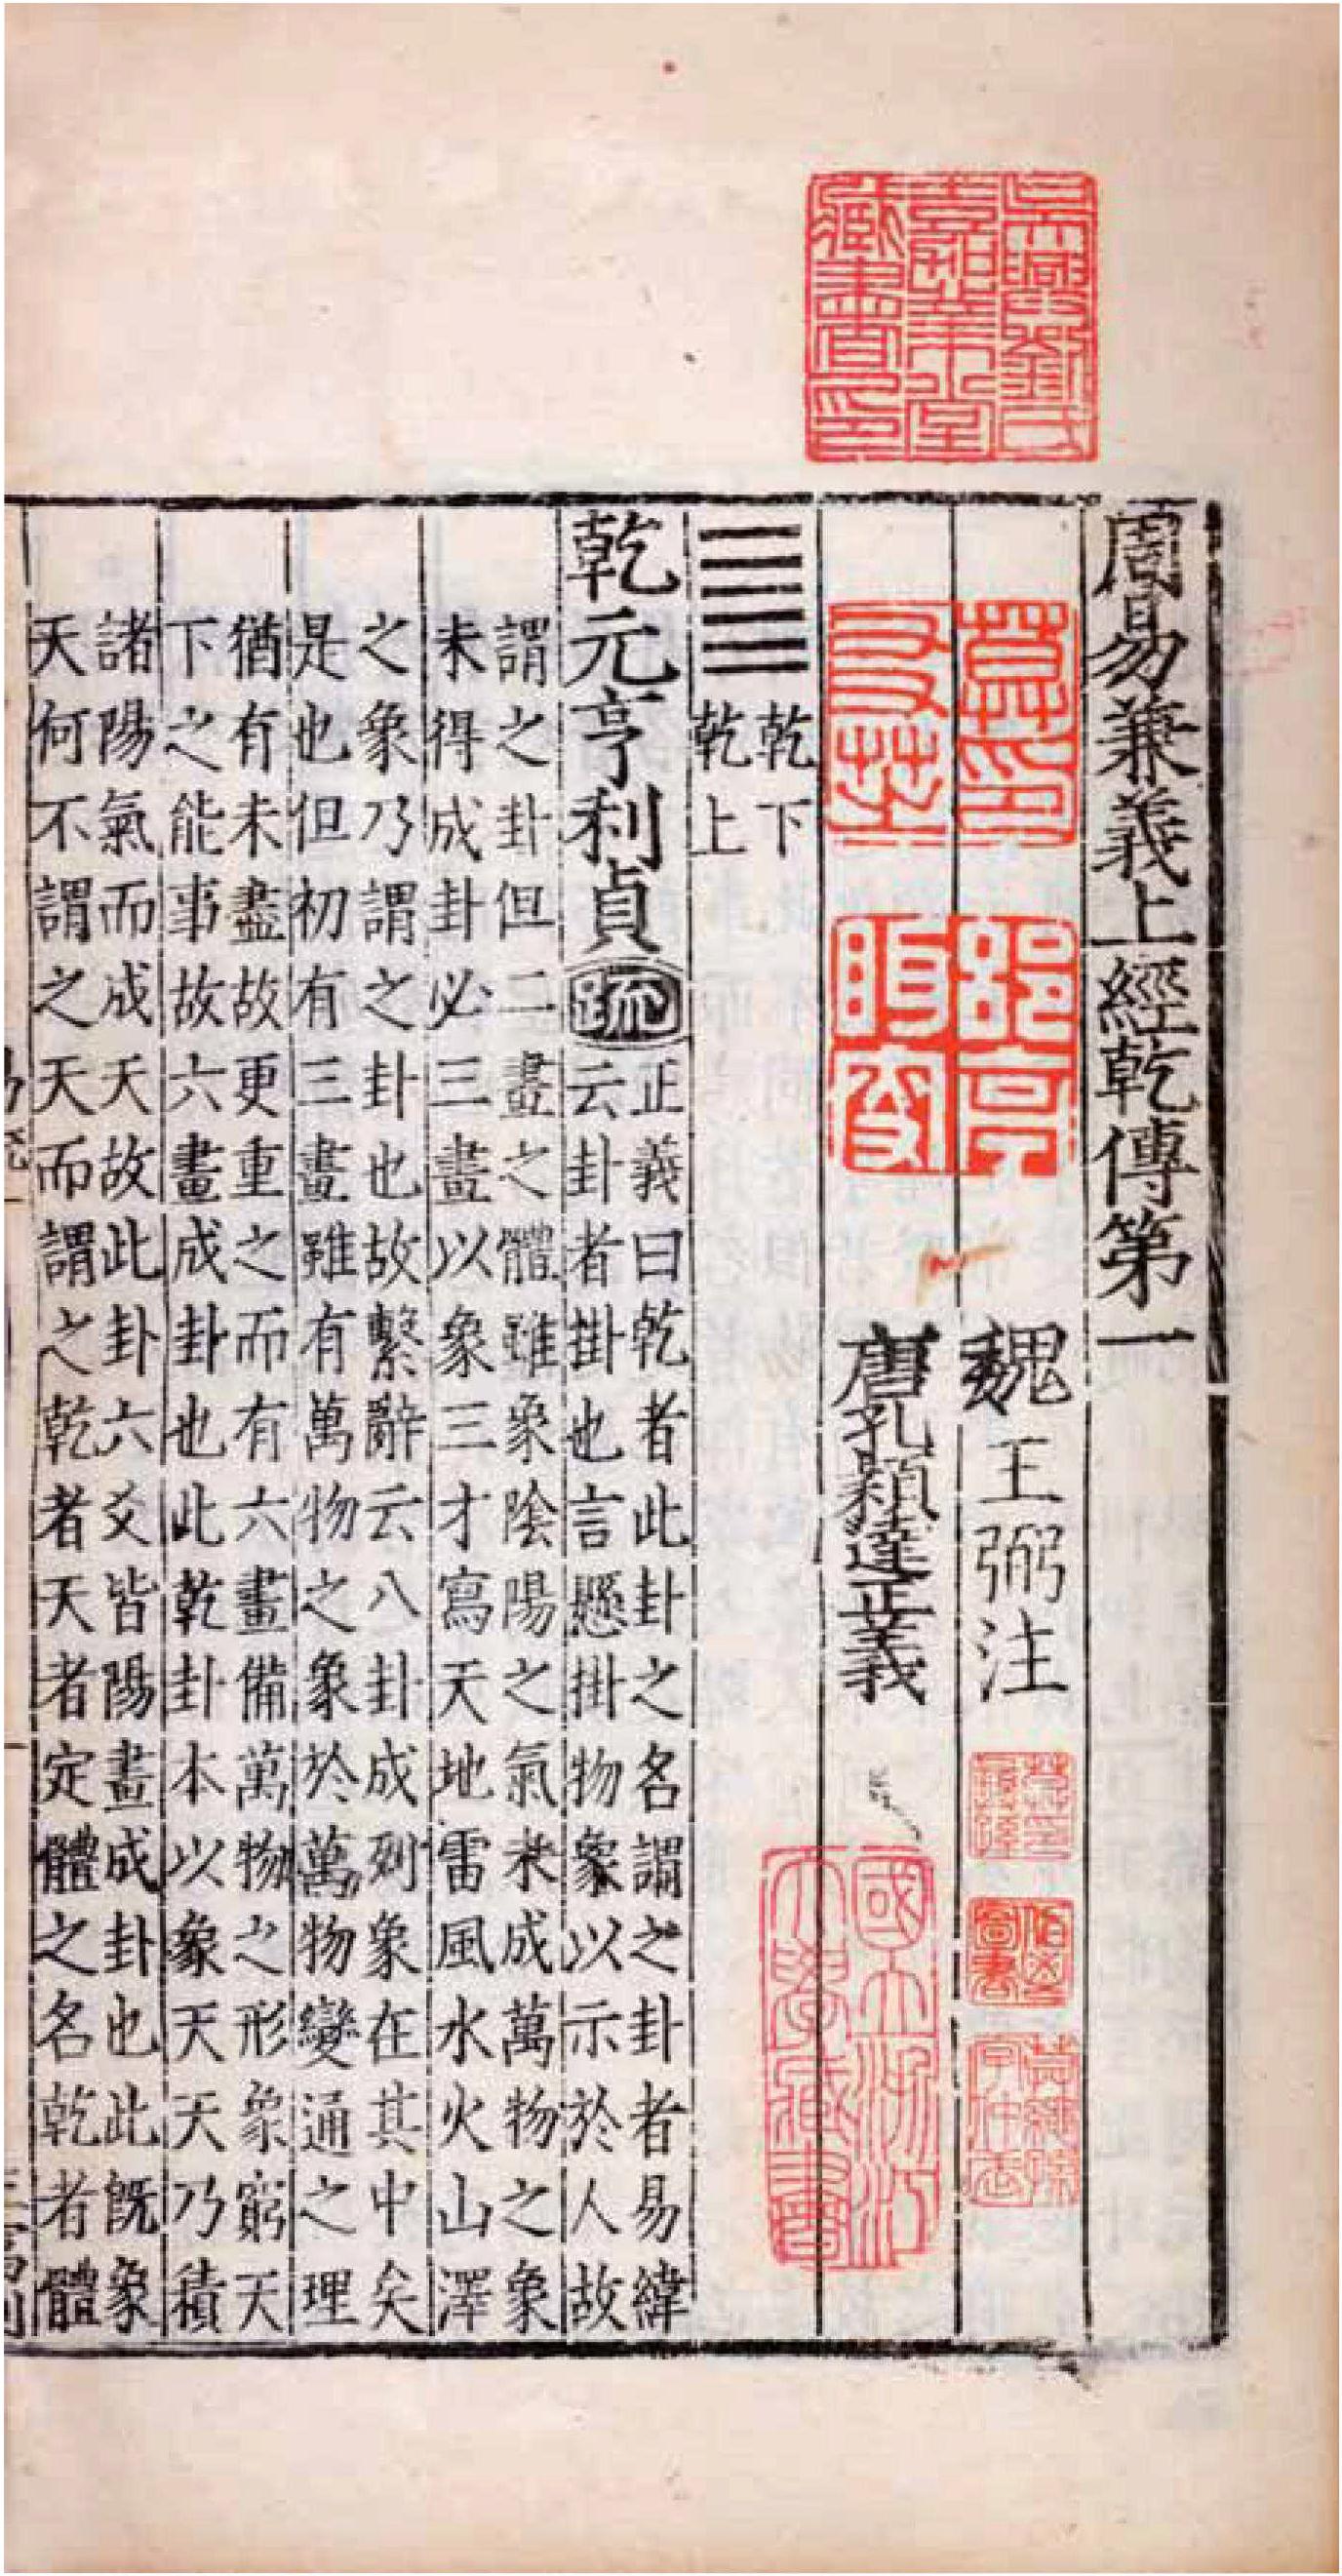 周易兼義上經乾傳第一
魏 王弼注
唐孔穎達正義
乾下
乾上
乾元亨利貞疏
正義曰乾者此卦之名謂之卦者易緯
云卦者掛也言懸掛物象以示於人故
謂之卦但二畫之體雖象陰陽之氣未成萬物之象
未得成卦必三畫以象三才寫天地雷風水火山澤
之象乃謂之卦也故繫辭云八卦成列象在其中矣
是也但初有三畫雖有萬物之象於萬物變通之理
猶有未盡故更重之而有六畫備萬物之形象窮天
下之能事故六畫成卦也此乾卦本以象天天乃積
諸陽氣而成天故此卦六爻皆陽畫成卦也此既象
天何不謂之天而謂之乾者天者定體之名乾者體
吳興劉氏
嘉業堂
藏書印
莫印
友芝
郘亭
眲叟
國立浙江
大學藏書